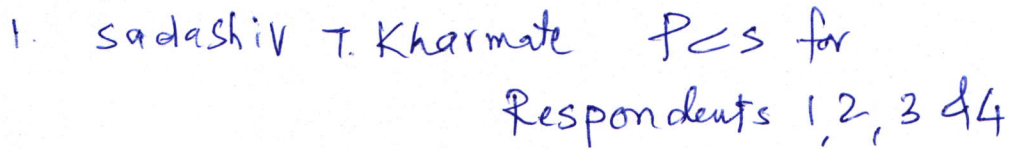 1. Sadashiv T. Kharmate PCS for
Respondents 1, 2, 3 &4